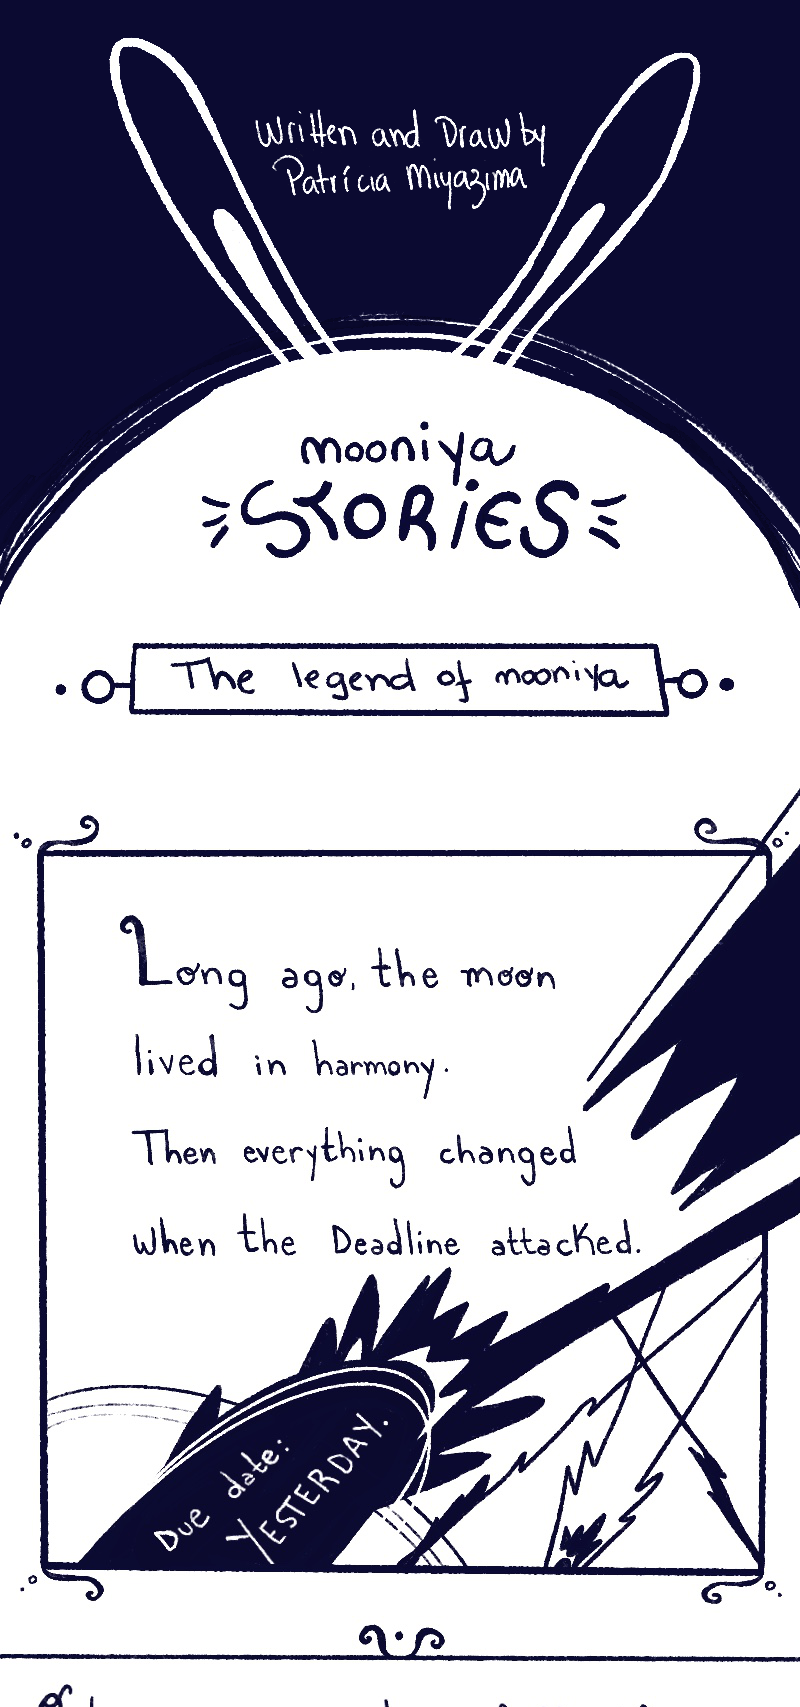 Written and Draw by
Patrícia Miyazima
mooniya
STORiES
The legend of mooniya
Long ago, the moon
lived in harmony.
Then everything changed
when the Deadline attacked.
Due date:
YESTERDAY.